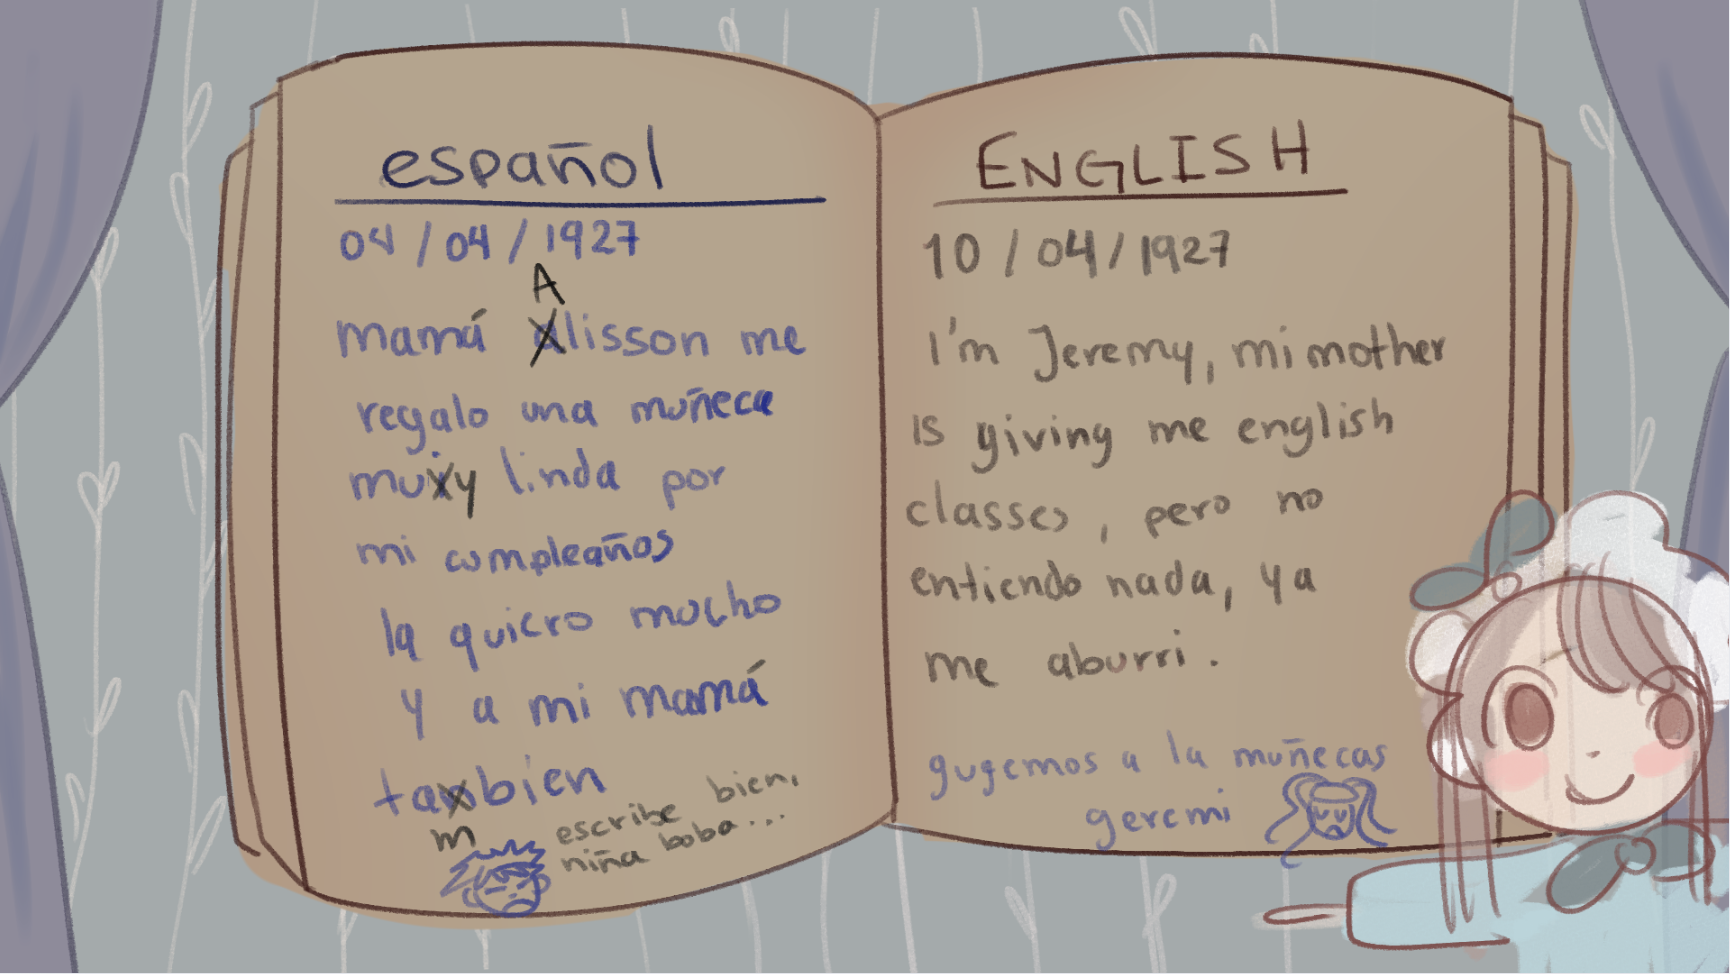 español
04/04/1927
A
mamá alisson me
regalo una muñeca
muiy linda por
mi cumpleaños
la quiero mucho
y a mi mamá
tanbien
m
escribe bien,
niña boba...
ENGLISH
10/04/1927
I'm Jeremy, mi mother
is giving me english
classes, pero no
entiendo nada, ya
me aburri.
gugemos a la muñecas
geremi